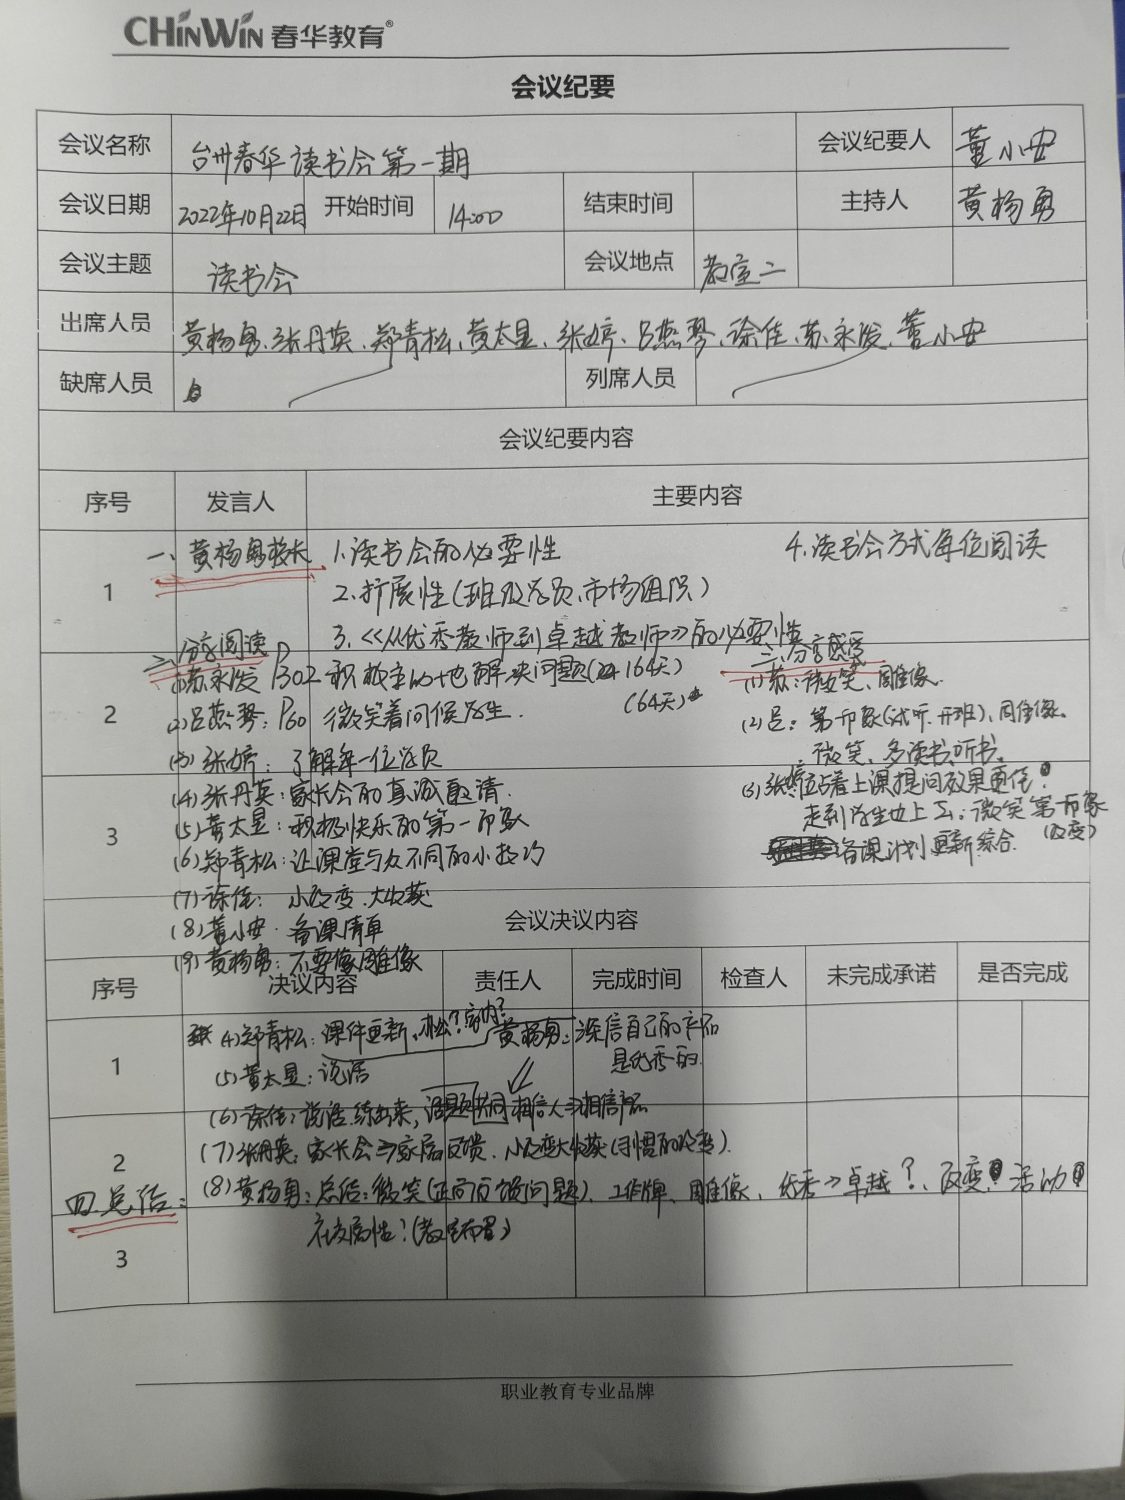 CHINWIN 春华教育®
会议纪要
会议名称 台州春华读书会第一期 会议纪要人 董小安
会议日期 2022年10月22日 开始时间 14:00 结束时间 主持人 黄杨勇
会议主题 读书会 会议地点 教室二
出席人员 黄杨勇、张丹英、郑青松、黄太显、张婷、吕燕琴、徐佳、苏永发、董小安
缺席人员 列席人员
会议纪要内容
序号 发言人 主要内容
1
一、黄杨勇校长 1.读书会的必要性 4.读书会方式每位阅读
2.扩展性(班级学员、市场组织)
3.《从优秀教师到卓越教师》的必要性
2
二、分享阅读
(1)苏永发 P302 积极主动地解决问题(164天)
(64天)
(2)吕燕琴:P60 微笑着问候学生.
(3)张婷:了解每一位学员
3
(4)张丹英:家长会的真诚邀请.
(5)黄太显:积极快乐的第一印象
(6)郑青松:让课堂与众不同的小技巧
(7)徐佳:小改变.大收获
(8)董小安·备课清单
(9)黄杨勇:不要像雕像
三.分享感受
(1)苏:微笑、雕像.
(2)吕:第一印象(试听.开班)、同雕像.
微笑、多读书听书.
(3)张婷:站着上课提问效果更佳.
走到学生边上去;微笑第一印象
(改变)
备课计划更新综合.
会议决议内容
序号 决议内容 责任人 完成时间 检查人 未完成承诺 是否完成
1
(4)郑青松:课件更新、 黄杨勇:深信自己的产品
是优秀的.
(5)黄太显:说话
(6)徐佳:说话.练出来, 话题共同 相信人⇒相信产品
2
(7)张丹英:家长会⇒家庭反馈、小改变大收获(习惯的改变).
四总结:
(8)黄杨勇:总结:微笑(正面回馈问题)、工作牌、雕像、优秀⇒卓越?、改变、活动
3
(教室布置)
职业教育专业品牌